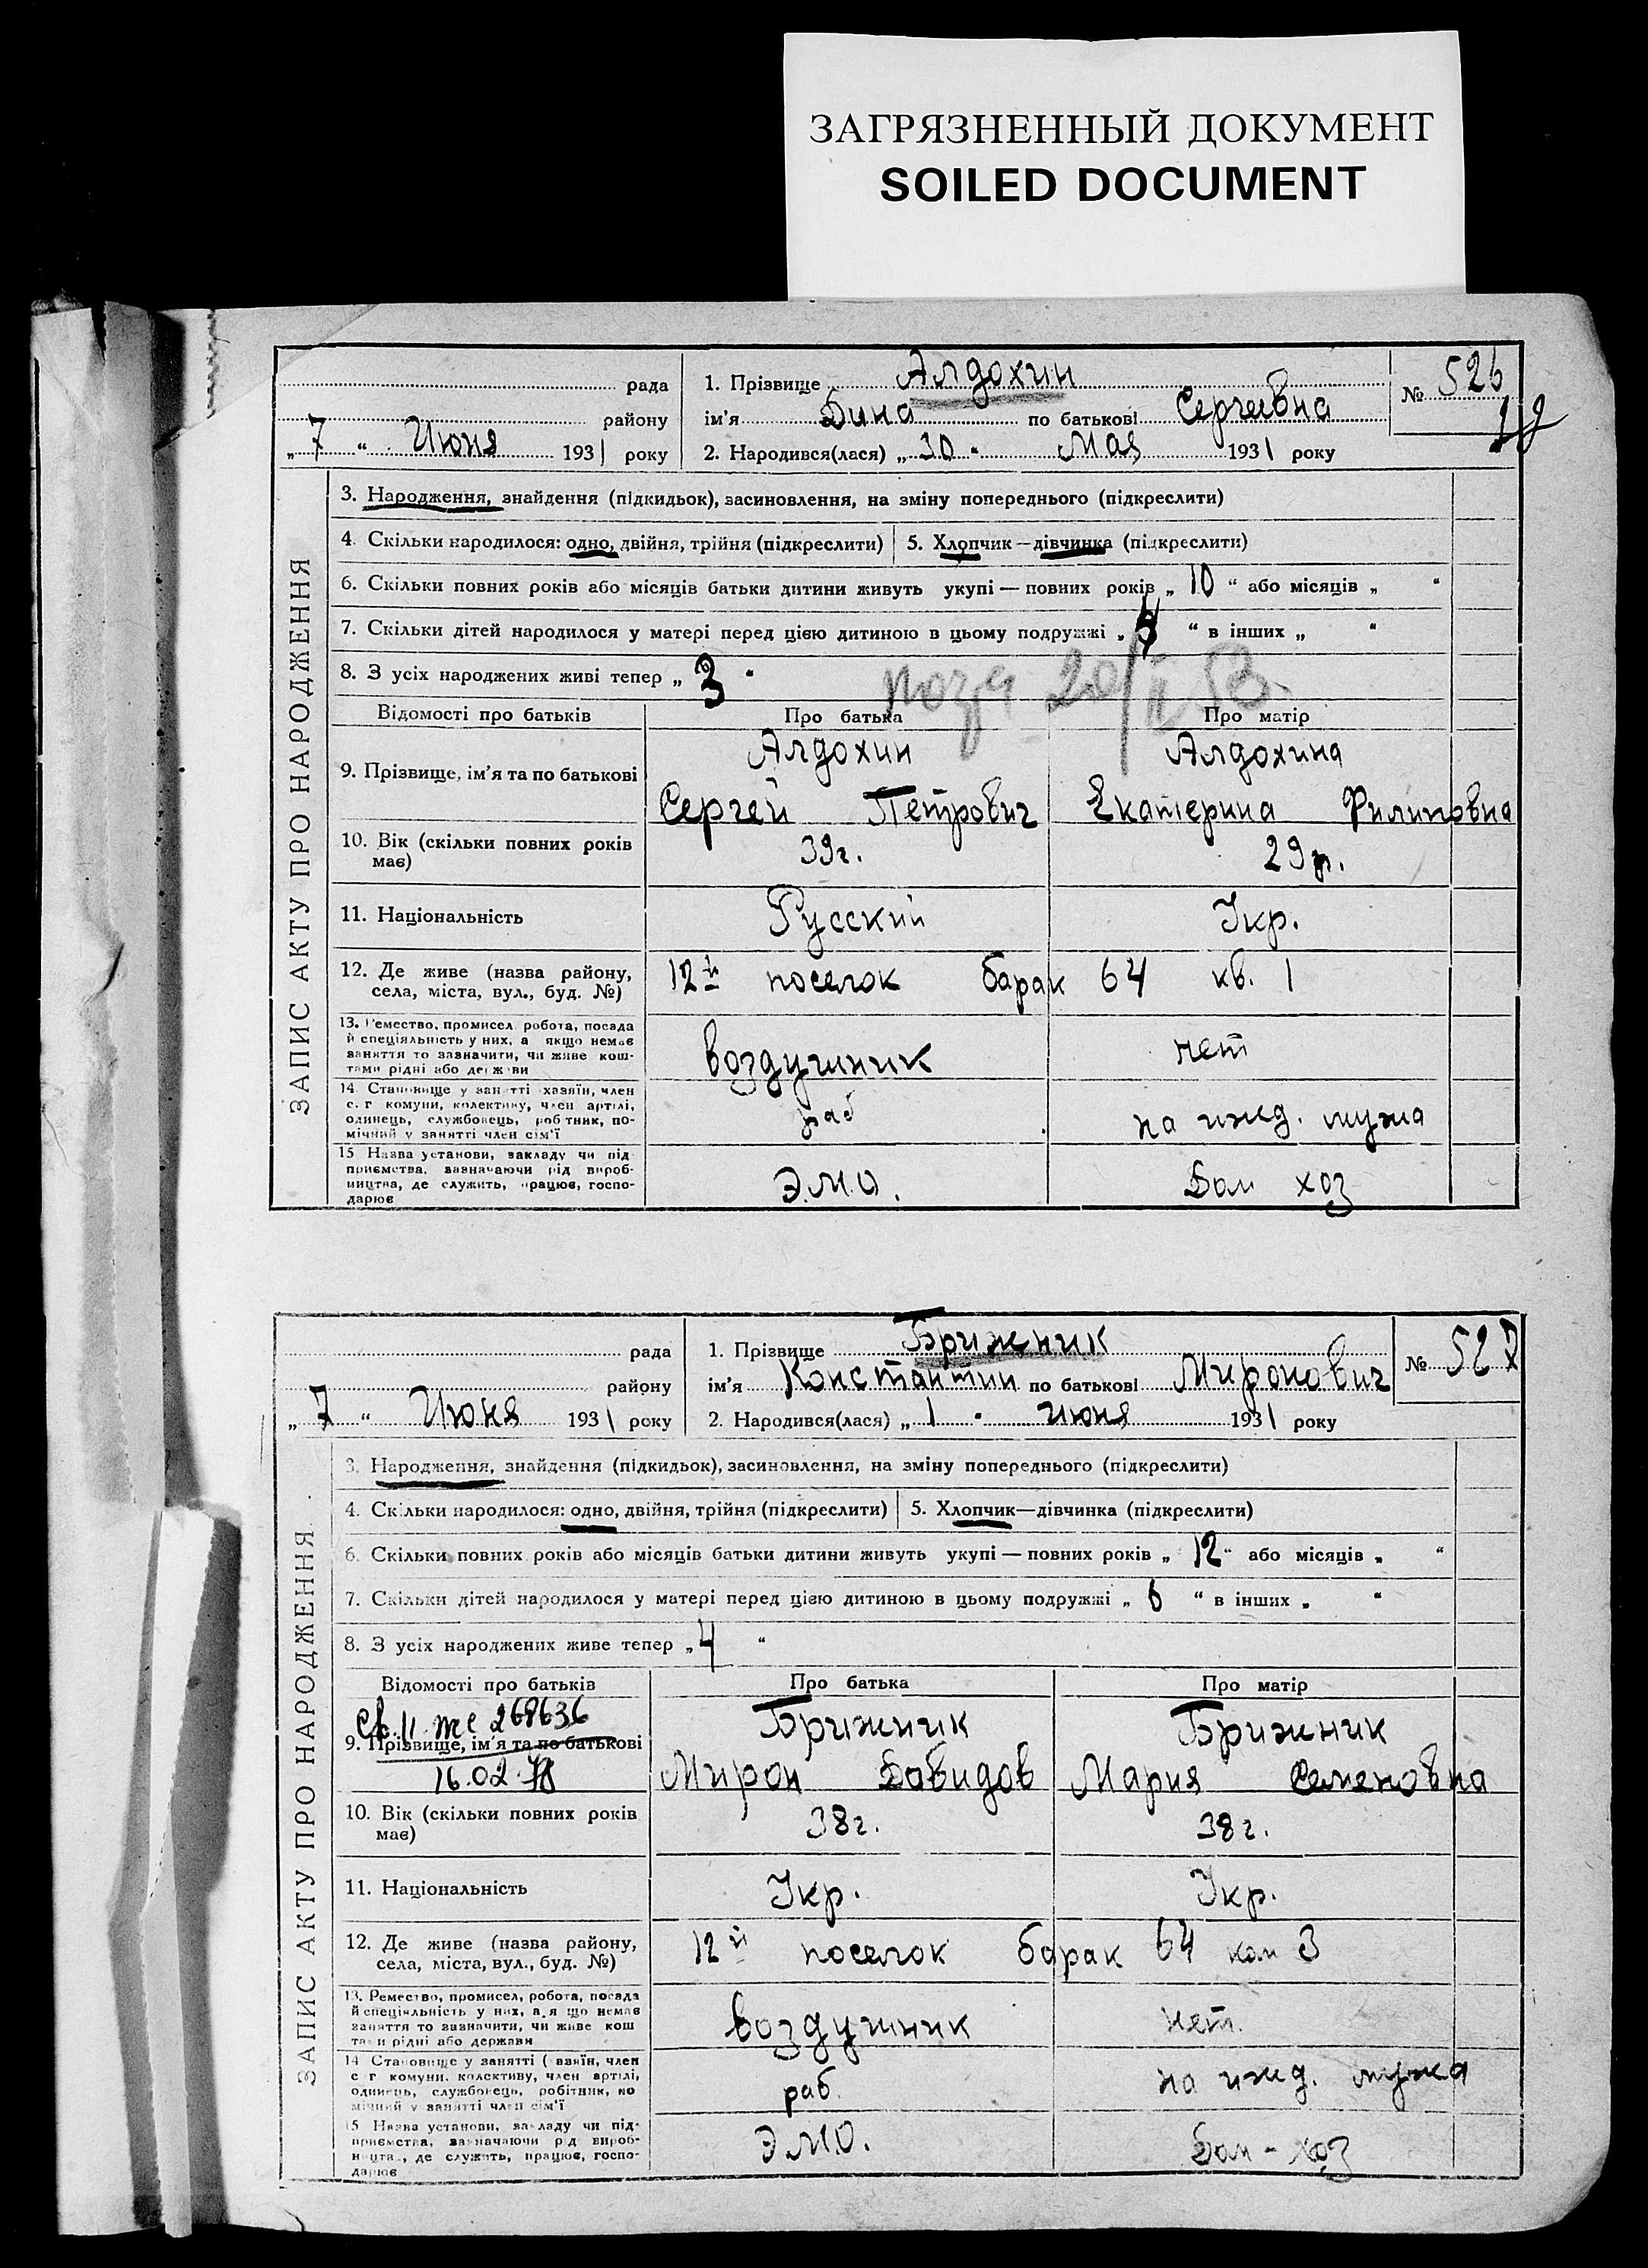 ЗАГРЯЗНЕННЫЙ ДОКУМЕНТ
SOILED DOCUMENT
ЗАПИС АКТУ ПРО НАРОДЖЕННЯ
рада
району
„7“ Июня 1931 року
1. Прізвище Алдохин
ім’я Дина по батькові Сергеевна
2. Народився(лася) „30“ Мая 1931 року
№ 526
3. Народження, знайдення (підкидьок), засиновлення, на зміну попереднього (підкреслити)
4. Скільки народилося: одно, двійня, трійня (підкреслити) 5. Хлопчик—дівчинка (підкреслити)
6. Скільки повних років або місяців батьки дитини живуть укупі — повних років „10“ або місяців „ “
7. Скільки дітей народилося у матері перед цією дитиною в цьому подружжі „ “ в інших „ “
8. З усіх народжених живі тепер „3“
20/II 53
Відомості про батьків Про батька Про матір
9. Прізвище, ім’я та по батькові
Алдохин Алдохина
Сергей Петрович Екатерина Филиповна
10. Вік (скільки повних років має) 39г. 29г.
11. Національність Русский Укр.
12. Де живе (назва району, села, міста, вул., буд. №) 12й поселок барак 64 кв. 1
13. Ремество, промисел, робота, посада
й спеціяльність у них, а якщо немає
заняття то зазначити, чи живе кош-
тами рідні або держави
воздушник нет
14. Становище у занятті хазяїн, член
с. г комуни, колективу, член артілі,
одинець, службовець, робітник, по-
мічний у занятті член сім’ї
раб на ижд. мужа
15 Назва установи, закладу чи під
приємства, зазначаючи рід вироб-
ництва, де служить, працює, госпо-
дарює
Э.М.О. Дом хоз
ЗАПИС АКТУ ПРО НАРОДЖЕННЯ
рада
району
„7“ Июня 1931 року
1. Прізвище Брижник
ім’я Константин по батькові Миронович
2. Народився(лася) „1“ июня 1931 року
№ 527
3. Народження, знайдення (підкидьок), засиновлення, на зміну попереднього (підкреслити)
4. Скільки народилося: одно, двійня, трійня (підкреслити) 5. Хлопчик—дівчинка (підкреслити)
6. Скільки повних років або місяців батьки дитини живуть укупі — повних років „12“ або місяців „ “
7. Скільки дітей народилося у матері перед цією дитиною в цьому подружжі „6“ в інших „ “
8. З усіх народжених живе тепер „4“
Відомості про батьків Про батька Про матір
268636
9. Прізвище, ім’я та по батькові
16.02.78
Брижник Брижник
Мирон Давидов Мария Семеновна
10. Вік (скільки повних років має) 38г. 38г.
11. Національність Укр. Укр.
12. Де живе (назва району, села, міста, вул., буд. №) 12й поселок барак 64 ком 3
13. Ремество, промисел, робота, посада
й спеціяльність у них, а якщо немає
заняття то зазначити, чи живе кош
тами рідні або держави
воздушник нет.
14 Становище у занятті (хазяїн, член
с г комуни, колективу, член артілі,
одинець, службовець, робітник, по
мічний у занятті член сім’ї
раб. на ижд. мужа
15 Назва установи, закладу чи під-
приємства, зазначаючи рід вироб-
ництва, де служить, працює, госпо-
дарює
Э.М.О. Дом-хоз